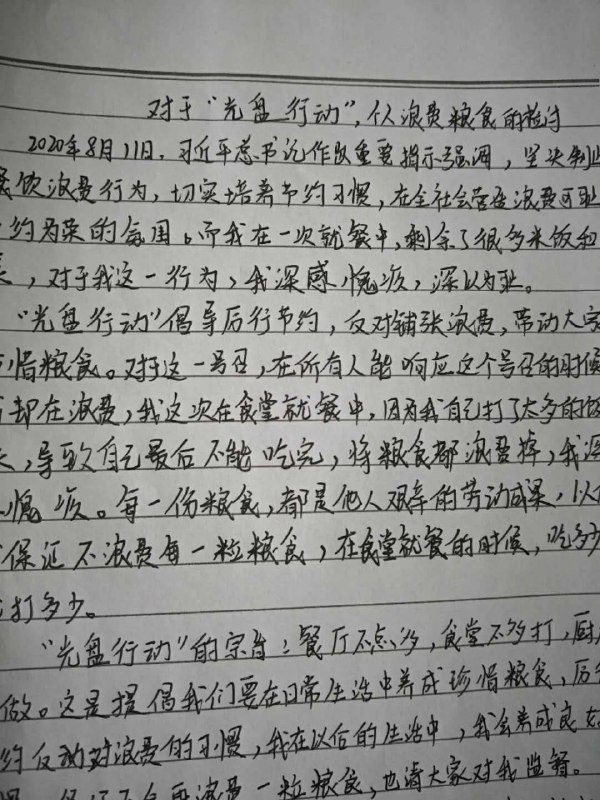 对于“光盘行动”,个人浪费粮食的检讨
2020年8月11日,习近平总书记作出重要指示强调,坚决制止
餐饮浪费行为,切实培养节约习惯,在全社会营造浪费可耻
节约为荣的氛围。而我在一次就餐中,剩余了很多米饭和
,对于我这一行为,我深感愧疚,深以为耻。
“光盘行动”倡导厉行节约,反对铺张浪费,带动大家
惜粮食。对于这一号召,在所有人能响应这个号召的时候
却在浪费,我这次在食堂就餐中,因为我自己打了太多的饭
,导致自己最后不能吃完,将粮食都浪费掉,我深
愧疚。每一份粮食,都是他人艰辛的劳动成果,以
保证不浪费每一粒粮食,在食堂就餐的时候,吃多少
打多少。
“光盘行动”的宗旨:餐厅不点多,食堂不多打,厨
做。这是提倡我们要在日常生活中养成珍惜粮食,厉
约反对浪费的习惯,我在以后的生活中,我会养成良好
浪费一粒粮食,也请大家对我监督。